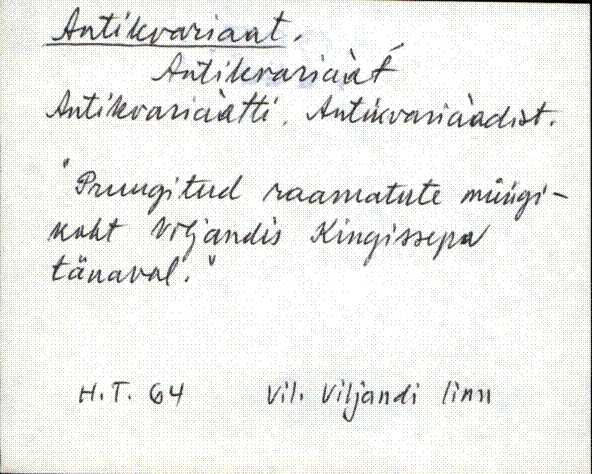 Antikvariaat.
Antikvariàat́
Antikvariàatti. Antikvariàadist.
"Pruugitud raamatute müügi-
koht Viljandis Kingissepa
tänaval."
H.T. 64 Vil. Viljandi linn